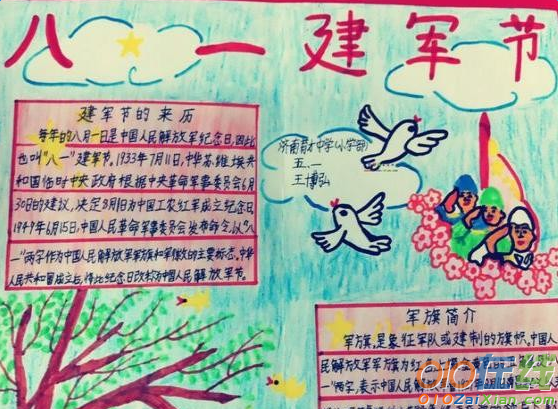 八一建军节
建军节的来历
每年的八月一日是中国人民解放军纪念日,因此
也叫"八一"建军节。1933年7月11日,中华苏维埃共
和国临时中央政府根据中央革命军事委员会6月
30日的建议,决定8月1日为中国工农红军成立纪念日。
1949年6月15日,中国人民革命军事委员会发布命令,以"八
一"两字作为中国人民解放军军旗和军徽的主要标志。中华
人民共和国成立后,将此纪念日改称为中国人民解放军节。
济南育才中学(小学部)
五.一
王博弘
军旗简介
军旗,是象征军队或建制的旗帜。中国人
民解放军军旗为红
一"两字,表示中国人民解放军
010在线
010zaixian.com